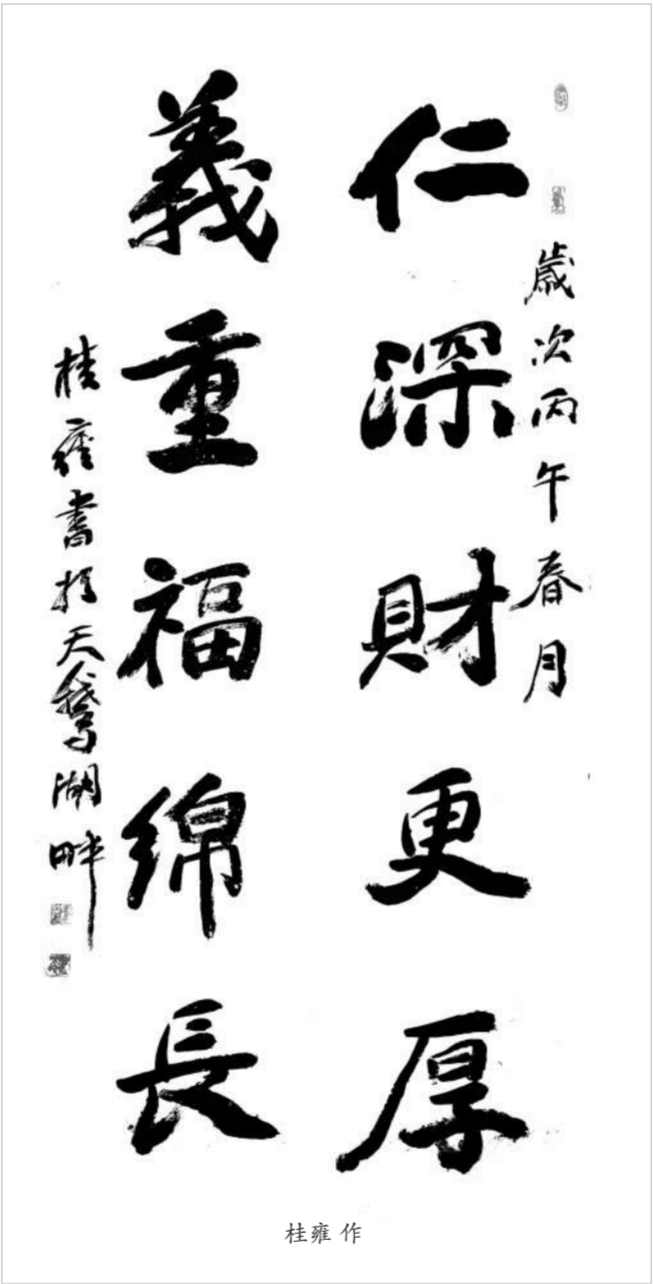 歲次丙午春月
仁深財更厚
義重福綿長
桂雍書於天鵝湖畔
桂雍 作